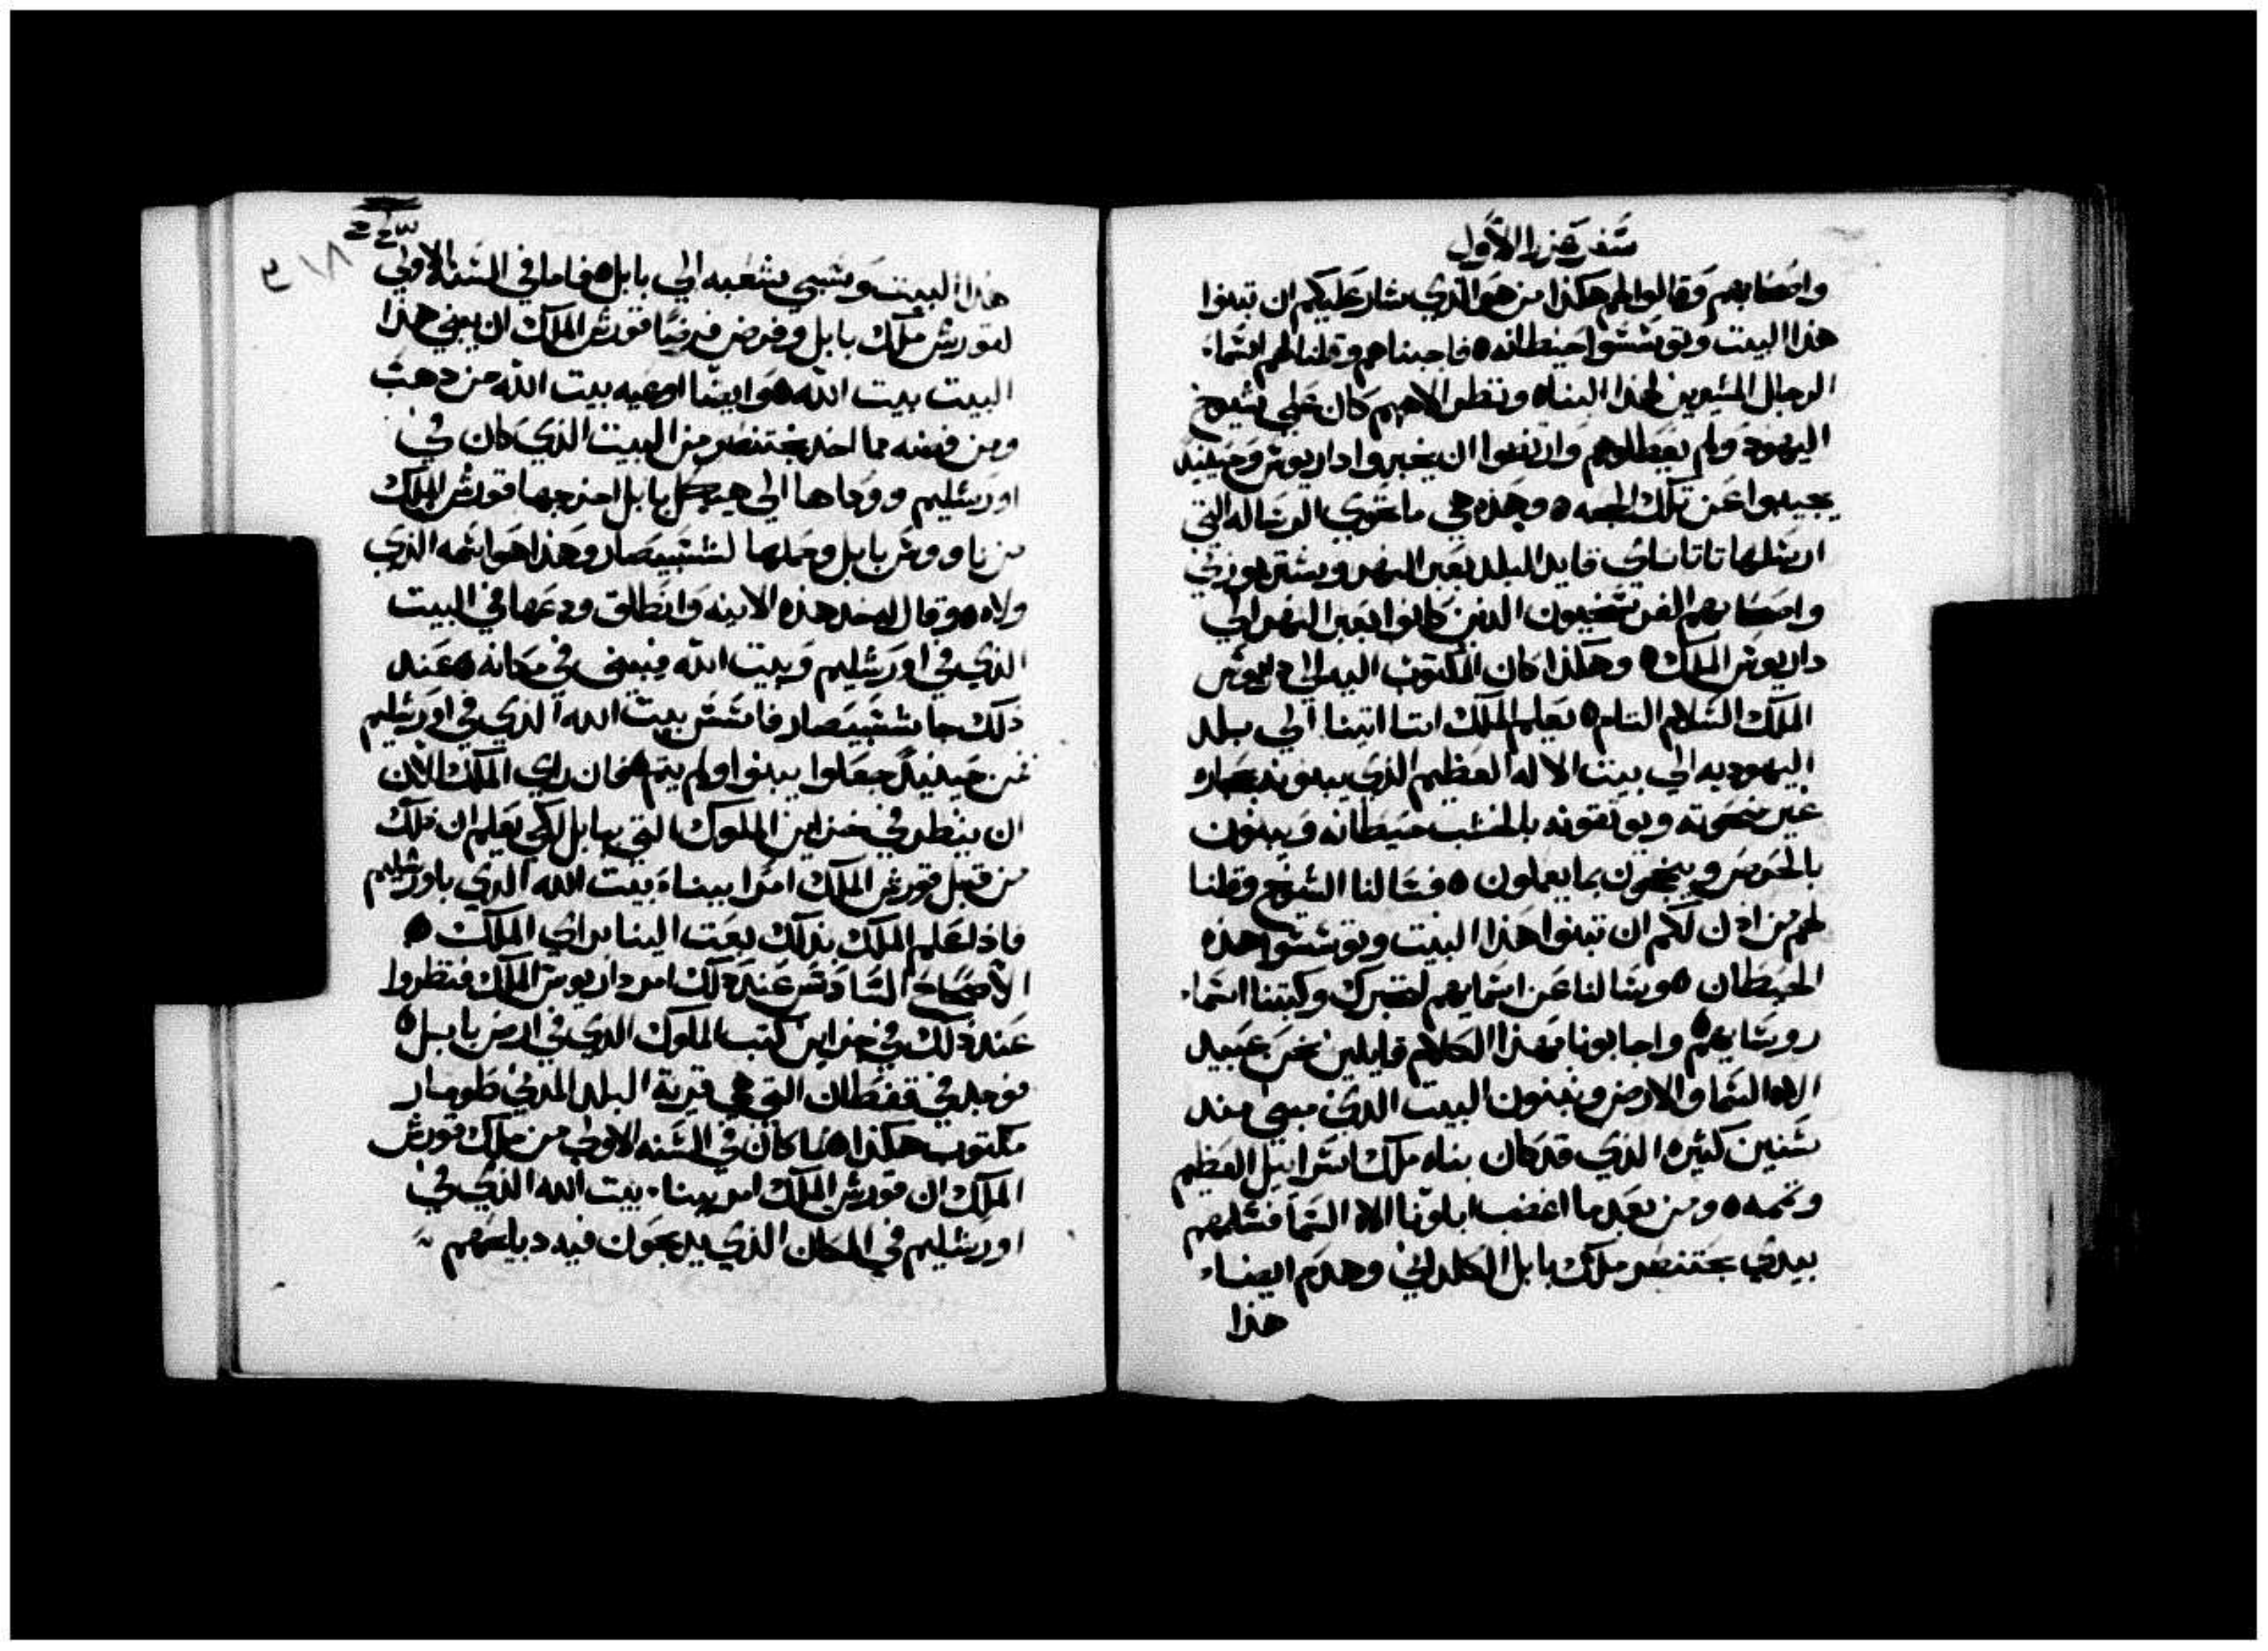 سفر عزرا الاول
واصحابهم وقالوا لهم هكذا من هو الذي سار عليكم ان تبنوا
هذا البيت وتوسسوا حيطانه ه فاجبناهم وقلنا لهم اسماء
الرجال المشيرين لهذا البناء ونظر الاههم كان على شيوخ
اليهود ولم يعطلوهم وارتضوا ان يخبروا داريوش وحينيد
يجيبوا عن تلك الجهه ه وهذه هي ما تحوي الرساله التي
ارسلها تاتاناي قايد البلد بعبر النهر وستربوزني
واصحابهم الذين كانوا بعبر النهر الى
داريوش الملك ه وهكذا كان المكتوب اليه الى داريوش
الملك السلام التام ه يعلم الملك اننا اتينا الى بلد
اليهوديه الى بيت الاله العظيم الذي يبنونه بحجاره
غير منحوته ويوثقونه بالخشب حيطانه ويبنون
بالحرص وينجحون بما يعملون ه فسالنا الشيوخ وقلنا
لهم من اذن لكم ان تبنوا هذا البيت وتوسسوا هذه
الحيطان ه وسالنا عن اسمايهم لنخبرك وكتبنا اسماء
روسايهم ه واجابونا بهذا الكلام قايلين نحن عبيد
الاه السما والارض ونبنون البيت الذي مبنى منذ
سنين كثيره الذي قد كان بناه ملك اسراييل العظيم
وتممه ه ومن بعد ما اغضب ابلونا الاه السما فسلمهم
بيدي بختنصر ملك بابل الكلداني وهدم ايضاء
هذا
هذا البيت وسبى شعبه الى بابل ه فاما في السنه الاولى
لقورش ملك بابل وفرض فرضيا قورش الملك ان يبنى هذا
البيت بيت الله ه وايضا اوعيه بيت الله من دهب
ومن فضه مما اخد بختنصر من البيت الذي كان في
اورشليم ووداها الى هيكل بابل اخرجها قورش الملك
من ناووس بابل وحملها لشسبيصار وهذا هو اسمه الذي
ولاه ه وقال له خد هذه الانيه وانطلق ودعها في البيت
الذي في اورشليم وبيت الله فيبنى في مكانه ه عند
ذلك جا شسبيصار فاسس بيت الله الذي في اورشليم
فمن حينيد جعلوا يبنوا ولم يتم ه فان راي الملك الان
ان ينظر في خزاين الملوك التي ببابل لكي يعلم ان ملك
من قبل قورش الملك امرا ببناء بيت الله الذي باورشليم
فاذا علم الملك بذلك بعت الينا براي الملك ه
الاصحاح السادس عند ذلك امر داريوش الملك فنظروا
عند ذلك في خزاين كتب الملوك الذي في ارض بابل ه
فوجد في قفطان التي هي قرية البلد المدني طومار
مكتوب هكذا ه لما كان في السنه الاولى من ملك قورش
الملك ان قورش الملك امر ببناء بيت الله الذي في
اورشليم في المكان الذي يدبحون فيه دبايحهم